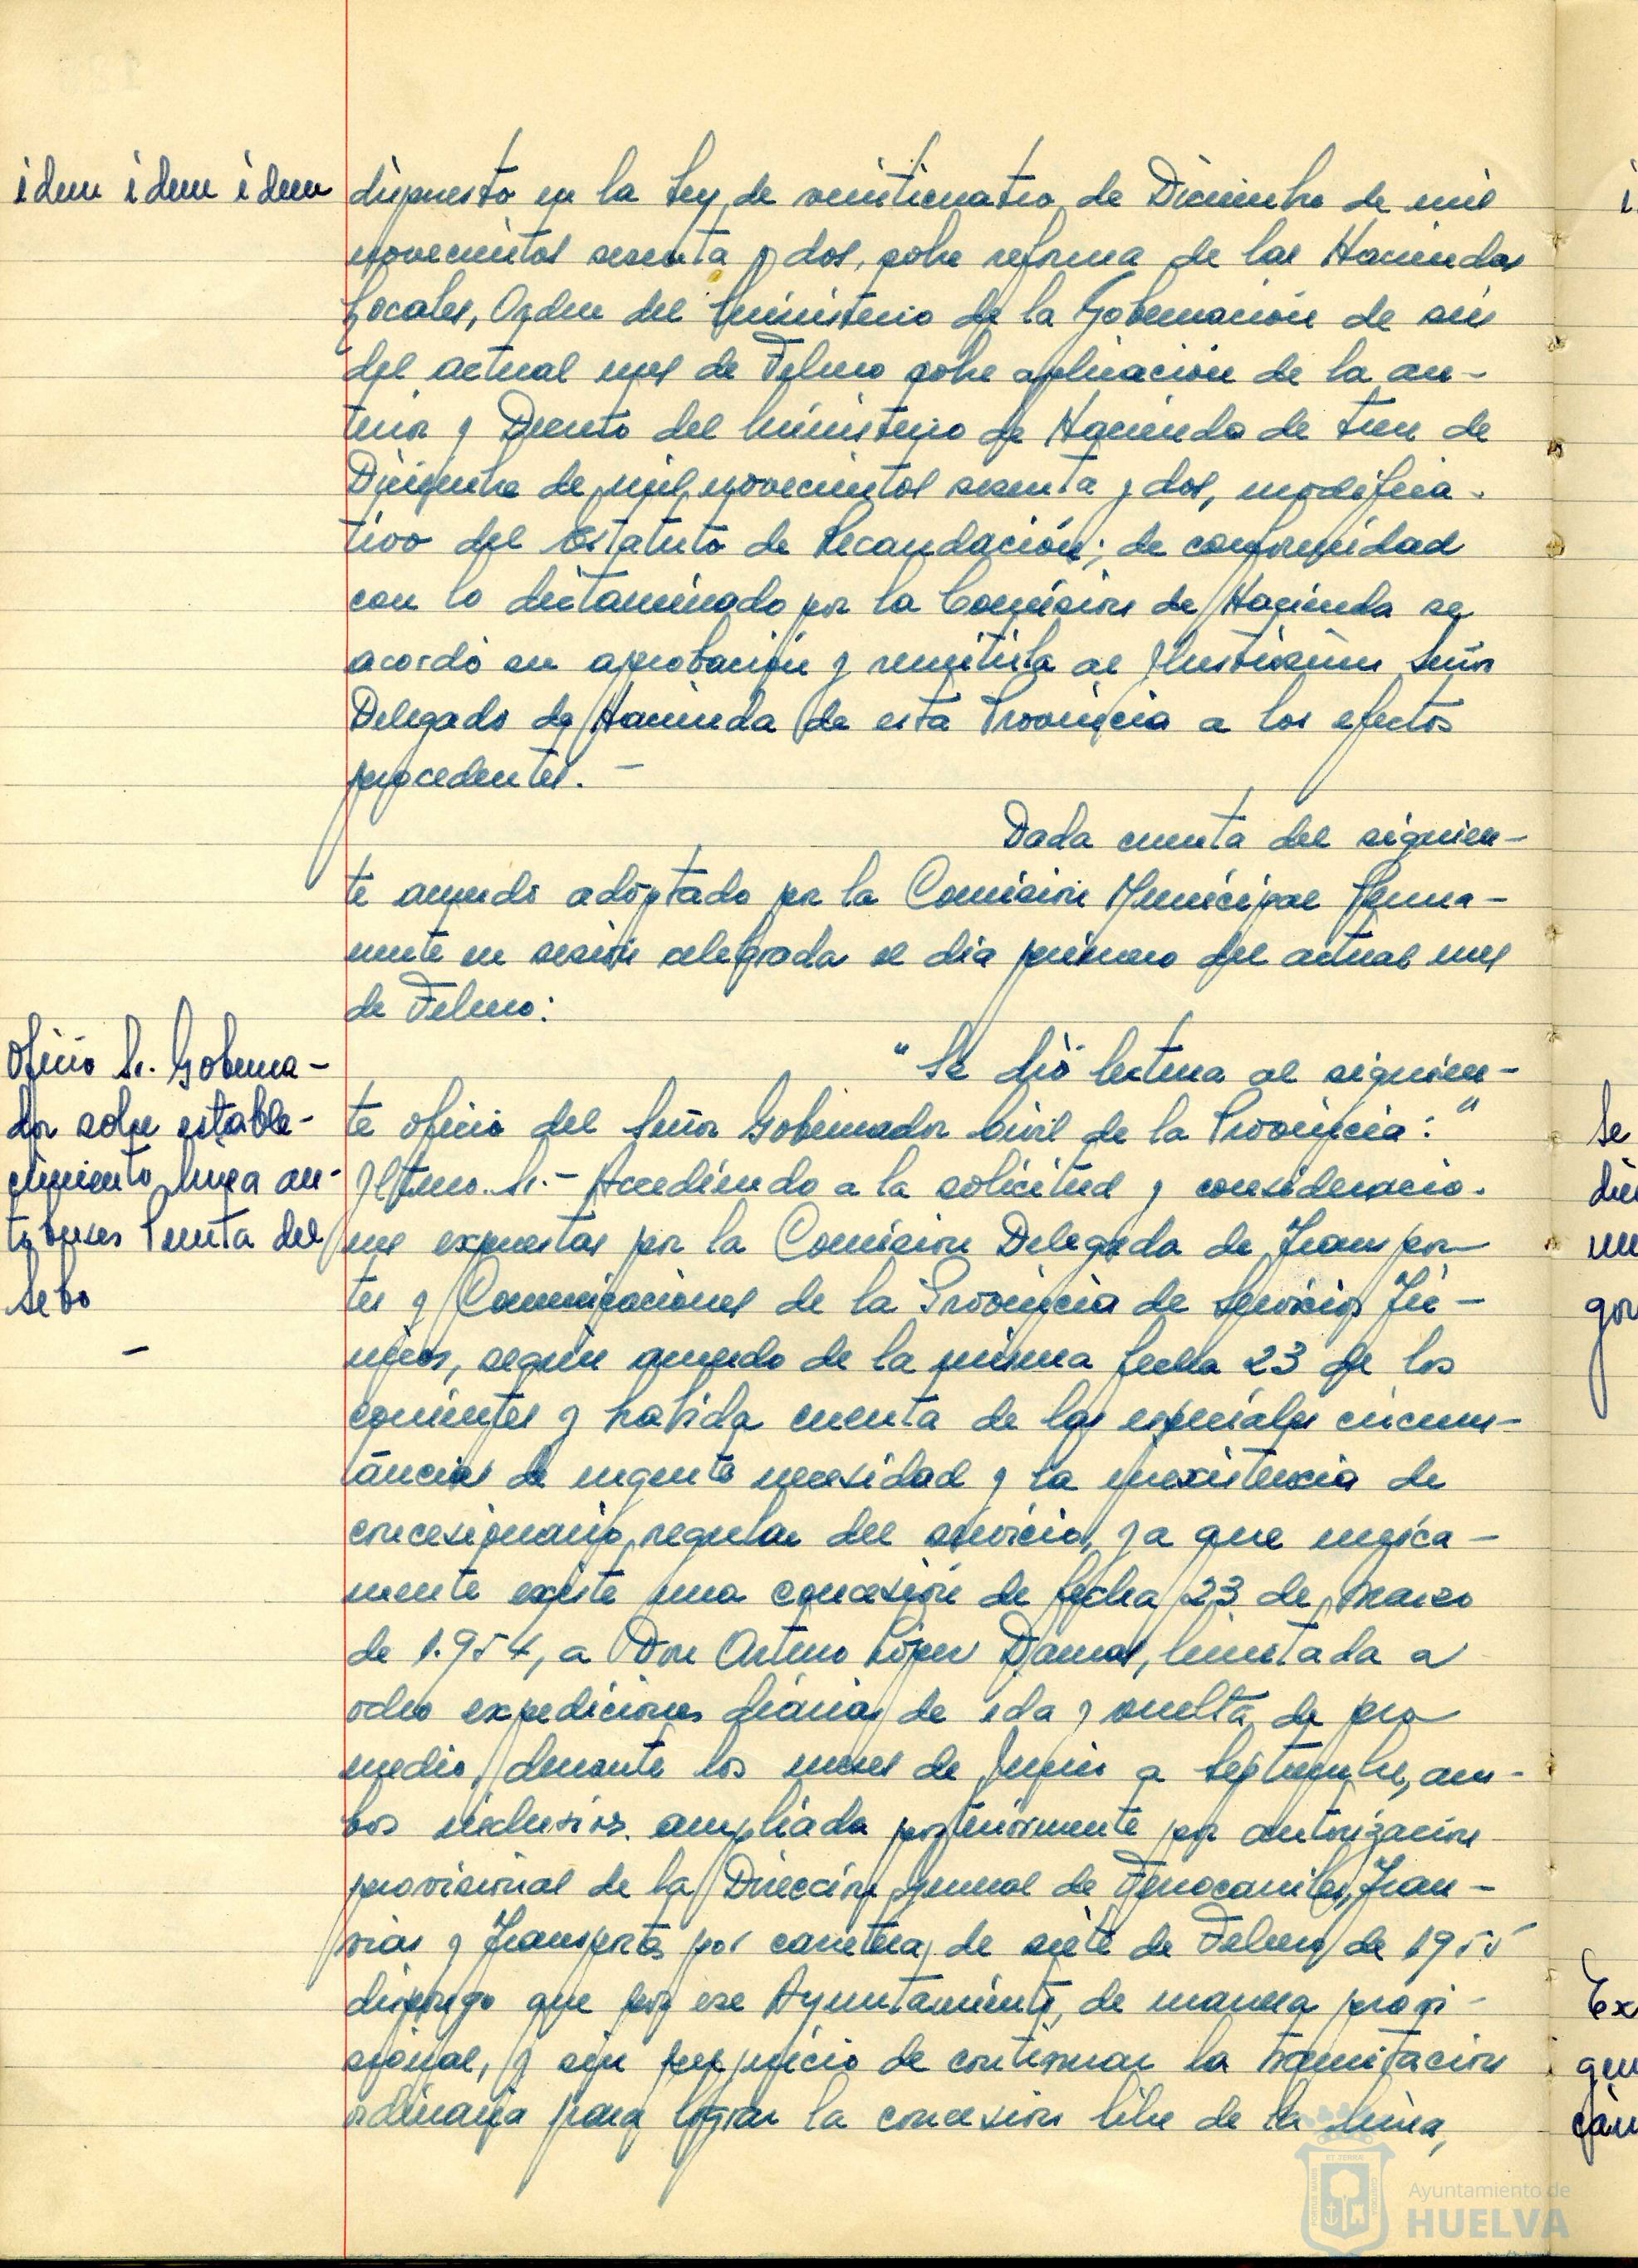 idem idem idem
dispuesto en la Ley de veinticuatro de Diciembre de mil
novecientos sesenta y dos, sobre reforma de las Haciendas
Locales, Orden del Ministerio de la Gobernación de seis
del actual mes de Febrero sobre aplicación de la an-
terior y Decreto del Ministerio de Hacienda de trece de
Diciembre de mil novecientos sesenta y dos, modifica-
tivo del Estatuto de Recaudación; de conformidad
con lo dictaminado por la Comisión de Hacienda se
acordó su aprobación y remitirla al Ilustrísimo Señor
Delegado de Hacienda de esta Provincia a los efectos
procedentes. -
Dada cuenta del siguien-
te acuerdo adoptado por la Comisión Municipal Perma-
nente en sesión celebrada el día primero del actual mes
de Febrero:
Oficio Sr. Goberna-
dor sobre estable-
cimiento línea au-
tobuses Punta del
Sebo
-
"Se dió lectura al siguien-
te oficio del Señor Gobernador Civil de la Provincia: "
Iltmo. Sr.- Accediendo a la solicitud y consideracio-
nes expuestas por la Comisión Delegada de Transpor-
tes y Comunicaciones de la Provincia de Servicios Téc-
nicos, según acuerdo de la misma fecha 23 de los
corrientes y habida cuenta de las especiales circuns-
tancias de urgente necesidad y la inexistencia de
concesionario regular del servicio, ya que única-
mente existe una concesión de fecha 23 de Marzo
de 1.954, a Don Arturo López Damas, limitada a
ocho expediciones diarias de ida y vuelta de pro
medio, durante los meses de Junio a Septiembre, am-
bos inclusives. ampliada posteriormente por autorización
provisional de la Dirección general de Ferrocarriles, Tran-
vías y Transportes por carretera, de siete de Febrero de 1955
dispongo que por ese Ayuntamiento, de manera provi-
sional, y sin perjuicio de continuar la tramitación
ordinaria para lograr la concesión libre de la línea,
i
Se
die
gor
Ex
Ayuntamiento de
HUELVA